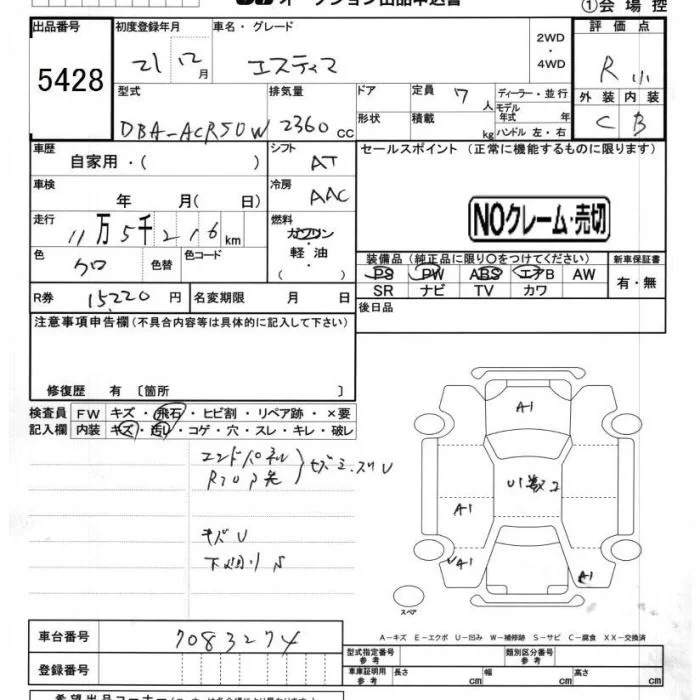 オークション出品申込書
①会場控
出品番号
5428
初度登録年月
21 12月
車名・グレード
エスティマ
2WD
・
4WD
評価点
R
外装 内装
C B
型式
DBA-ACR50W
排気量
2360cc
ドア
形状
定員 7人
積載 kg
ディーラー・並行
モデル年式 年
ハンドル 左・右
車歴
自家用・( )
シフト
AT
車検
年 月( 日)
冷房
AAC
走行
11万5千216km
燃料
ガソリン
・
軽油
( )
色
クロ
色替
色コード
R券
15220円
名変期限 月 日
セールスポイント(正常に機能するものに限ります)
NOクレーム・売切
装備品(純正品に限り○をつけてください)
新車保証書
PS PW ABS エアB AW
SR ナビ TV カワ
有・無
後日品
注意事項申告欄(不具合内容等は具体的に記入して下さい)
修復歴 有〔箇所 〕
検査員記入欄
FW キズ・飛石・ヒビ割・リペア跡・×要
内装 キズ・汚れ・コゲ・穴・スレ・キレ・破レ
エンドパネル
キズU
A1
A1
A1
A1
スペア
A-キズ E-エクボ U-凹み W-補修跡 S-サビ C-腐食 XX-交換済
車台番号
7083274
登録番号
型式指定番号
参考
類別区分番号
参考
車庫証明用
参考
長さ cm
幅 cm
高さ cm
希望出品コーナー